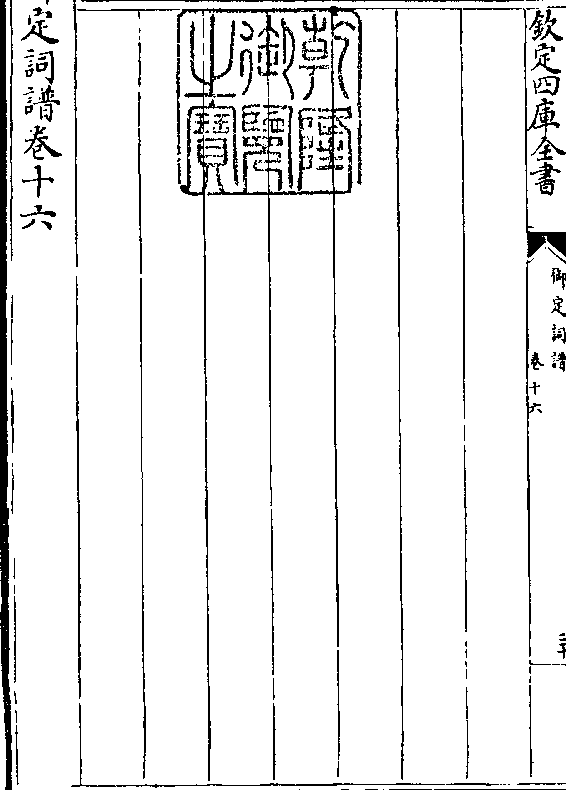 欽定四庫全書
御定詞譜
卷十六
乾隆
御覽
之寶
定詞譜卷十六